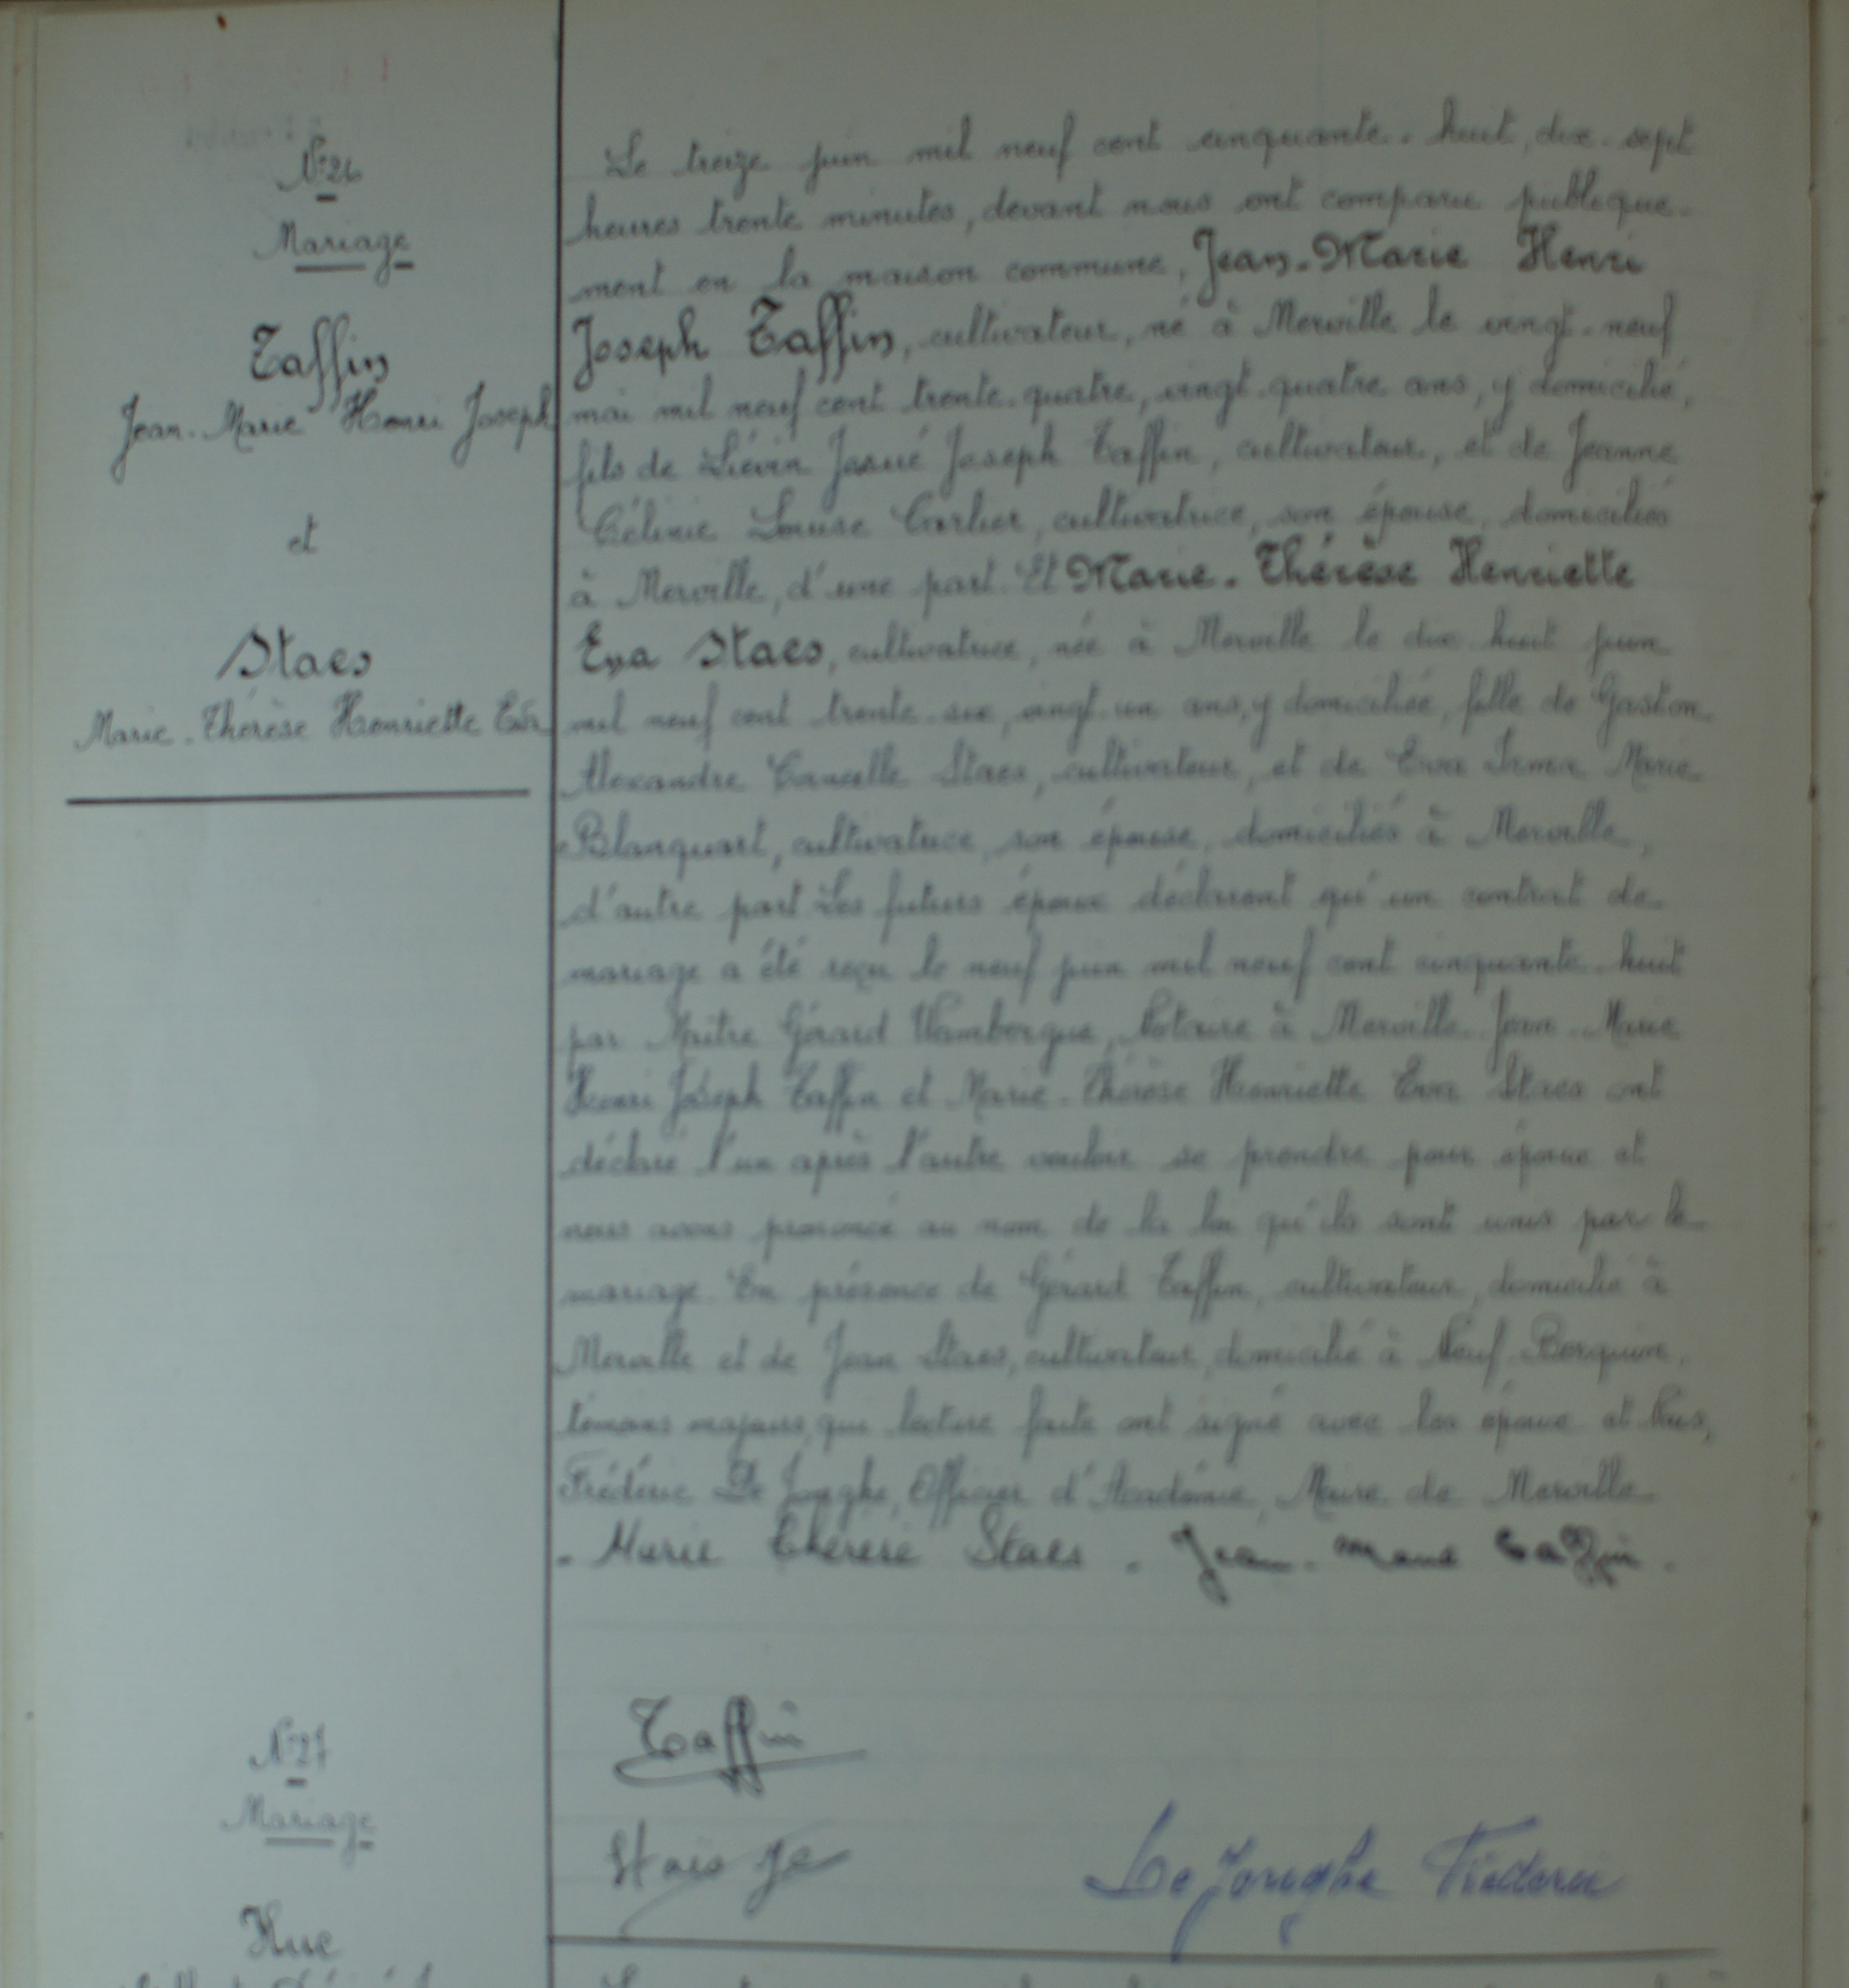 N°26
Mariage
Taffin
Jean-Marie Henri Joseph
et
Staes
Marie-Thérèse Henriette Eva
Le treize juin mil neuf cent cinquante-huit, dix-sept
heures trente minutes, devant nous ont comparu publique-
ment en la maison commune, Jean-Marie Henri
Joseph Taffin, cultivateur, né à Merville le vingt-neuf
mai mil neuf cent trente-quatre, vingt-quatre ans, y domicilié,
fils de Liévin Josué Joseph Taffin, cultivateur, et de Jeanne
Célinie Louise Carlier, cultivatrice, son épouse, domiciliés
à Merville, d'une part. Et Marie-Thérèse Henriette
Eva Staes, cultivatrice, née à Merville le dix-huit juin
mil neuf cent trente-six, vingt-un ans, y domiciliée, fille de Gaston
Alexandre Staes, cultivateur, et de Eva Irma Marie
Blanquart, cultivatrice, son épouse, domiciliés à Merville,
d'autre part. Les futurs époux déclarent qu'un contrat de
mariage a été reçu le neuf juin mil neuf cent cinquante-huit
par Maître Gérard Wambergue, Notaire à Merville. Jean-Marie
Henri Joseph Taffin et Marie-Thérèse Henriette Eva Staes ont
déclaré l'un après l'autre vouloir se prendre pour époux et
nous avons prononcé au nom de la loi qu'ils sont unis par le
mariage. En présence de Gérard Taffin, cultivateur, domicilié à
Merville et de Jean Staes, cultivateur, domicilié à Neuf-Berquin,
témoins majeurs, qui lecture faite ont signé avec les époux et Nous,
Frédéric De Jonghe, Officier d'Académie, Maire de Merville.
Marie Thérèse Staes. Jean-Marie Taffin.
Taffin
Staes
De Jonghe Frédéric
N°27
Mariage
Hue